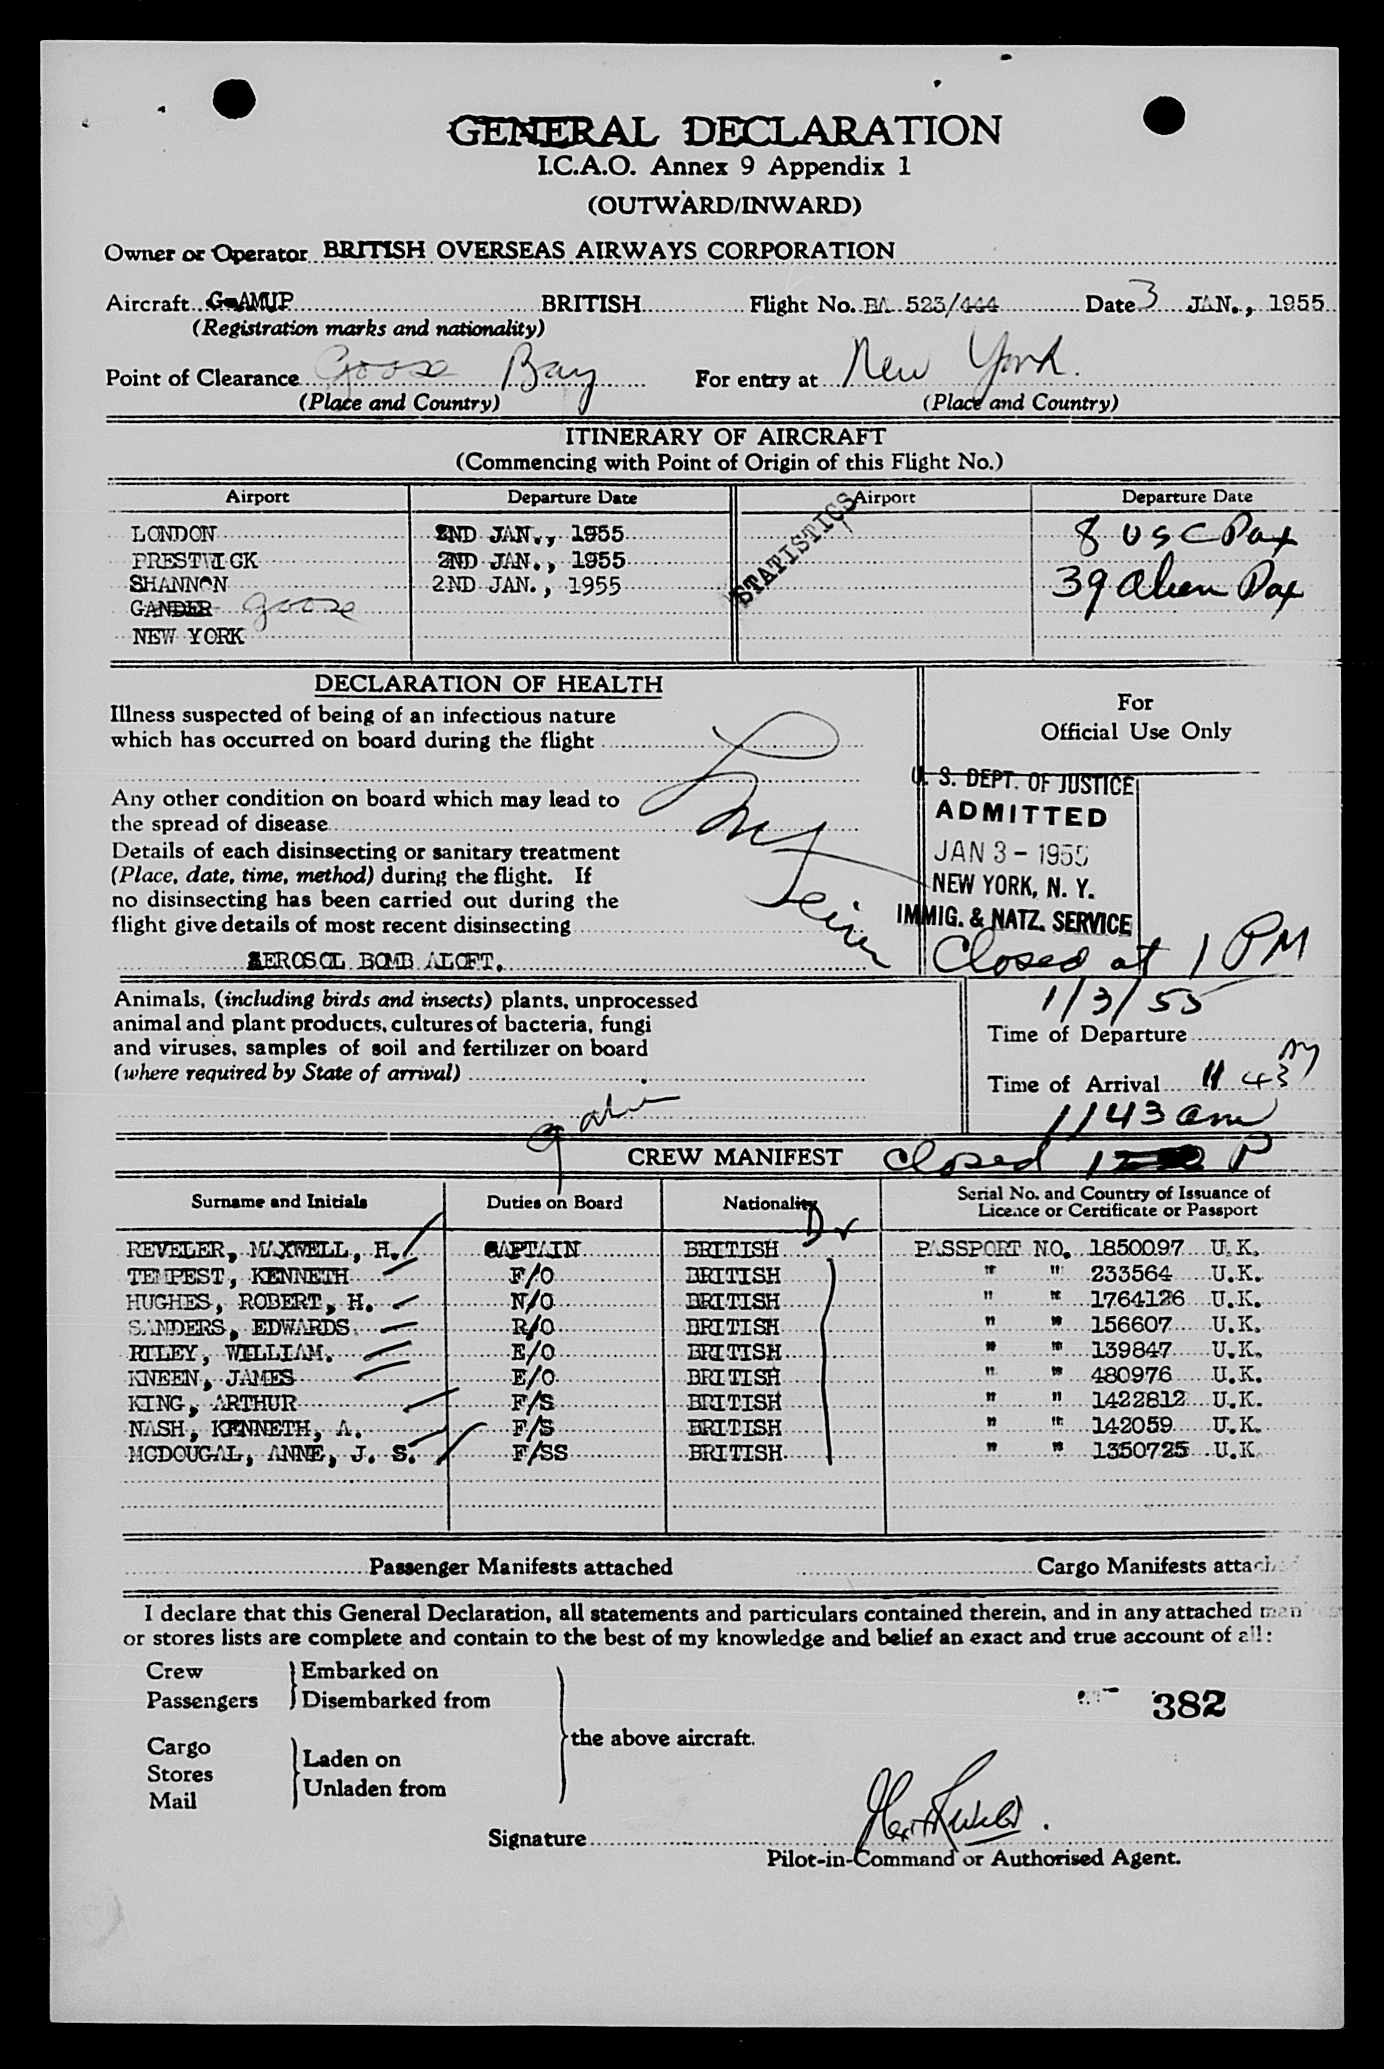 GENERAL DECLARATION
I.C.A.O. Annex 9 Appendix 1
(OUTWARD/INWARD)
Owner or Operator BRITISH OVERSEAS AIRWAYS CORPORATION
Aircraft G-AMUP BRITISH Flight No. BA 523/444 Date 3 JAN., 1955
(Registration marks and nationality)
Point of Clearance Goose Bay For entry at New York.
(Place and Country) (Place and Country)
ITINERARY OF AIRCRAFT
(Commencing with Point of Origin of this Flight No.)
Airport Departure Date Airport Departure Date
LONDON 2ND JAN., 1955 8 USC Pax
PRESTWICK 2ND JAN., 1955
SHANNON 2ND JAN., 1955 39 Alien Pax
GANDER Goose
NEW YORK
STATISTICS
DECLARATION OF HEALTH
Illness suspected of being of an infectious nature
which has occurred on board during the flight
Any other condition on board which may lead to
the spread of disease
Details of each disinsecting or sanitary treatment
(Place, date, time, method) during the flight. If
no disinsecting has been carried out during the
flight give details of most recent disinsecting
AEROSOL BOMB ALOFT.
For
Official Use Only
U. S. DEPT. OF JUSTICE
ADMITTED
JAN 3 - 1955
NEW YORK, N. Y.
IMMIG. & NATZ. SERVICE
Closed at 1 PM
1/3/55
Animals, (including birds and insects) plants, unprocessed
animal and plant products, cultures of bacteria, fungi
and viruses, samples of soil and fertilizer on board
(where required by State of arrival)
Time of Departure
Time of Arrival 11 43
1143 am
CREW MANIFEST closed 1 P
Surname and Initials Duties on Board Nationality Serial No. and Country of Issuance of
Licence or Certificate or Passport
REVELER, MAXWELL, H. CAPTAIN BRITISH PASSPORT NO. 1850097 U.K.
TEMPEST, KENNETH F/O BRITISH " " 233564 U.K.
HUGHES, ROBERT, H. N/O BRITISH " " 1764126 U.K.
SANDERS, EDWARDS R/O BRITISH " " 156607 U.K.
RILEY, WILLIAM. E/O BRITISH " " 139847 U.K.
KNEEN, JAMES E/O BRITISH " " 480976 U.K.
KING, ARTHUR F/S BRITISH " " 1422812 U.K.
NASH, KENNETH, A. F/S BRITISH " " 142059 U.K.
MCDOUGAL, ANNE, J. S. F/SS BRITISH " " 1350725 U.K.
Passenger Manifests attached Cargo Manifests attached
I declare that this General Declaration, all statements and particulars contained therein, and in any attached
or stores lists are complete and contain to the best of my knowledge and belief an exact and true account of all:
Crew
Passengers
Embarked on
Disembarked from
Cargo
Stores
Mail
Laden on
Unladen from
the above aircraft.
382
Signature
Pilot-in-Command or Authorised Agent.